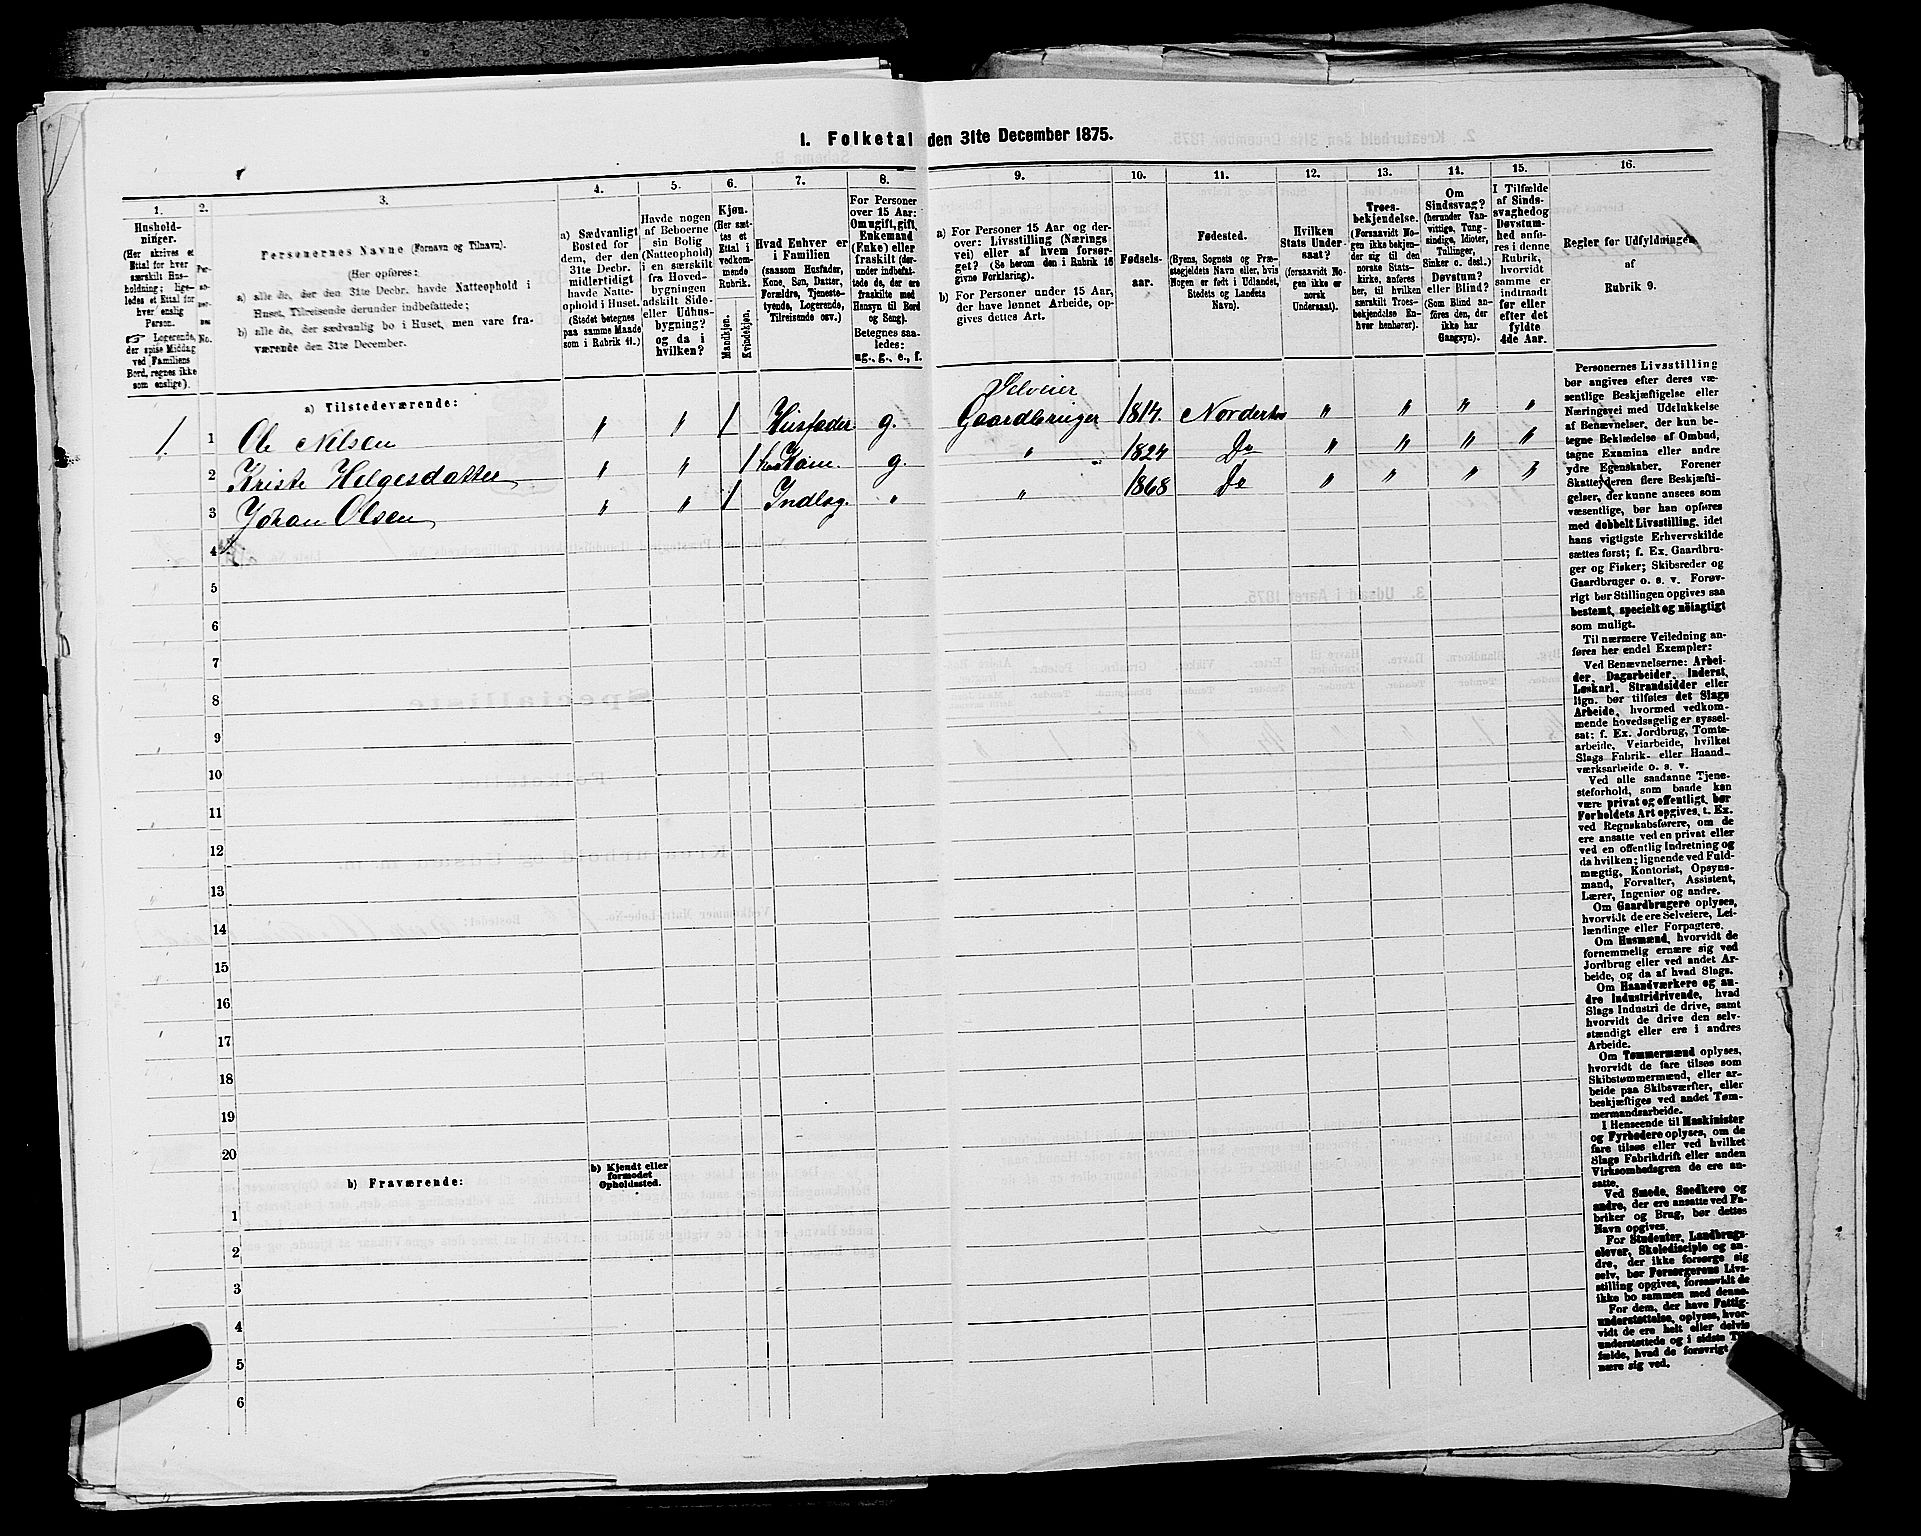 1. Folketal den 31te December 1875.
1. 2. 3. 4. 5. 6. 7. 8. 9. 10. 11. 12. 13. 14. 15. 16.
Hushold-
ninger.
(Her skrives et
Ettal for hver
særskilt Hus-
holdning; lige-
ledes et Ettal for
hver enslig
Person.
Logerende,
der spise Middag
ved Familiens
Bord, regnes ikke
som enslige).
Per-
so-
ner-
nes
No.
Personernes Navne (Fornavn og Tilnavn).
(Her opføres:
a) alle de, der den 31te Decbr. havde Natteophold i
Huset, Tilreisende derunder indbefattede;
b) alle de, der sædvanlig bo i Huset, men vare fra-
værende den 31te December.
a) Sædvanligt
Bosted for
dem, der den
31te Decbr.
midlertidigt
havde Natte-
ophold i Huset.
(Stedet betegnes
paa samme Maade
som i Rubrik 11.)
Havde nogen
af Beboerne
sin Bolig
(Natteophold)
i en særskilt
fra Hoved-
bygningen
adskilt Side-
eller Udhus-
bygning?
og da i
hvilken?
Kjøn.
(Her sæt-
tes et
Ettal i
vedkom-
mende
Rubrik.
Mandkjøn.
Kvindekjøn.
Hvad Enhver er
i Familien
(saasom Husfader,
Kone, Søn, Datter,
Forældre, Tjeneste-
tyende, Logerende,
Tilreisende osv.)
For Personer
over 15 Aar:
Om ugift, gift,
Enkemand
(Enke) eller
fraskilt (der-
under indbefat-
tede de, der ere
fraskilte med
Hensyn til Bord
og Seng).
Betegnes saa-
ledes:
ug., g., e., f.
a) For Personer 15 Aar og der-
over: Livsstilling (Nærings
vei) eller af hvem forsør-
get? (Se herom den i Rubrik 16
givne Forklaring.)
b) For Personer under 15 Aar,
der have lønnet Arbeide, op-
gives dettes Art.
Fødsels-
aar.
Fødested.
(Byens, Sognets og Præ-
stegjeldets Navn eller, hvis
Nogen er født i Udlandet,
Stedets og Landets
Navn).
Hvilken
Stats Under-
saat?
(forsaavidt No-
gen ikke er
norsk
Undersaat).
Troes-
bekjendelse.
(Forsaavidt No-
gen ikke bekjen-
der sig til den
norske Stats-
kirke, anføres
her, til hvilken
særskilt Troes-
bekjendelse En-
hver henhører).
Om
Sindssvag?
(herunder Van-
vittige, Tung-
sindige, Idioter,
Tullinger,
Sinker o. desl.).
Døvstum?
eller Blind?
(Som Blind an-
føres den, der
ikke har
Gangsyn).
I Tilfælde
af Sinds-
svaghed og
Døvstum-
hed anfø-
res i denne
Rubrik,
hvorvidt
samme er
indtraadt
før eller
efter det
fyldte
4de Aar.
Regler for Udfyldningen
af
Rubrik 9.
a) Tilstedeværende:
1. 1 Ole Nelsen " " 1 Husfader g. Selveier Gaardbruger 1814. " " " "
2 Kriste Helgesdatter " " 1 Kone. g. " 1824 Do " " " "
3 Johan Olsen " " 1 Indlog. " " 1868 Do " " " "
4
5
6
7
8
9
10
11
12
13
14
15
16
17
18
19
20
b) Fraværende:
b) Kjendt eller
formodet
Opholdssted.
1
2
3
4
5
6
Personernes Livsstilling
bør angives efter deres væ-
sentlige Beskjæftigelse eller
Næringsvei med Udelukkelse
af Benævnelser, der kun be-
tegne Beklædelse af Ombud,
tagne Examina eller andre
ydre Egenskaber. Forener
Skatteyderen flere Beskjæfti-
gelser, der kunne ansees som
væsentlige, bør han opføres
med dobbelt Livsstilling, idet
hans vigtigste Erhvervskilde
sættes først; f. Ex. Gaardbru-
ger og Fisker; Skibsreder og
Gaardbruger o. s. v. Forøv-
rigt bør Stillingen opgives saa
bestemt, specielt og nöiagtigt
som muligt.
Til nærmere Veiledning an-
føres her endel Exempler:
Ved Benævnelserne: Arbei-
der, Dagarbeider, Inderst,
Løskarl, Strandsidder eller
lign. bør tilføies det Slags
Arbeide, hvormed vedkom-
mende hovedsagelig er syssel-
sat; f. Ex. Jordbrug, Tomte-
arbeide, Veiarbeide, hvilket
Slags Fabrik- eller Haand-
værksarbeide o. s. v.
Ved alle saadanne Tjene-
steforhold, som baade kan
være privat og offentligt, bør
Forholdets Art opgives, t. Ex.
ved Regnskabsførere, om de
ere ansatte ved en privat eller
ved en offentlig Indretning og
da hvilken; lignende ved Fuld-
mægtig, Kontorist, Opsyns-
mand, Forvalter, Assistent,
Lærer, Ingeniør og andre.
Om Gaardbrugere oplyses,
hvorvidt de ere Selveiere, Lei-
lændinge eller Forpagtere.
Om Husmænd, hvorvidt de
fornemmelig ernære sig ved
Jordbrug eller ved andet Ar-
beide, og da af hvad Slags.
Om Haandværkere og an-
dre Industridrivende, hvad
Slags Industri de drive, samt
hvorvidt de drive den selv-
stændigt eller ere i andres
Arbeide.
Om Tømmermænd oplyses,
hvorvidt de fare tilsøs som
Skibstømmermænd, eller ar-
beide paa Skibsværfter, eller
beskjæftiges ved andet Tøm-
mermandsarbeide.
I Henseende til Maskinister
og Fyrbødere oplyses, om de
fare tilsøs eller ved hvilket
Slags Fabrikdrift eller anden
Virksomhedsgren de ere an-
satte.
Ved Smede, Snedkere og
andre, der ere ansatte ved Fa-
briker og Brug, bør dettes
Navn opgives.
For Studenter, Landbrugs-
elever, Skoledisciple og an-
dre, der ikke forsørge sig
selv, bør Forsørgerens Livs-
stilling opgives, forsaavidt de
ikke bo sammen med denne.
For dem, der have Fattig-
understøttelse, oplyses, hvor-
vidt de ere helt eller delvis
understøttede og i sidste Til-
fælde, hvad de forøvrigt
nære sig ved.